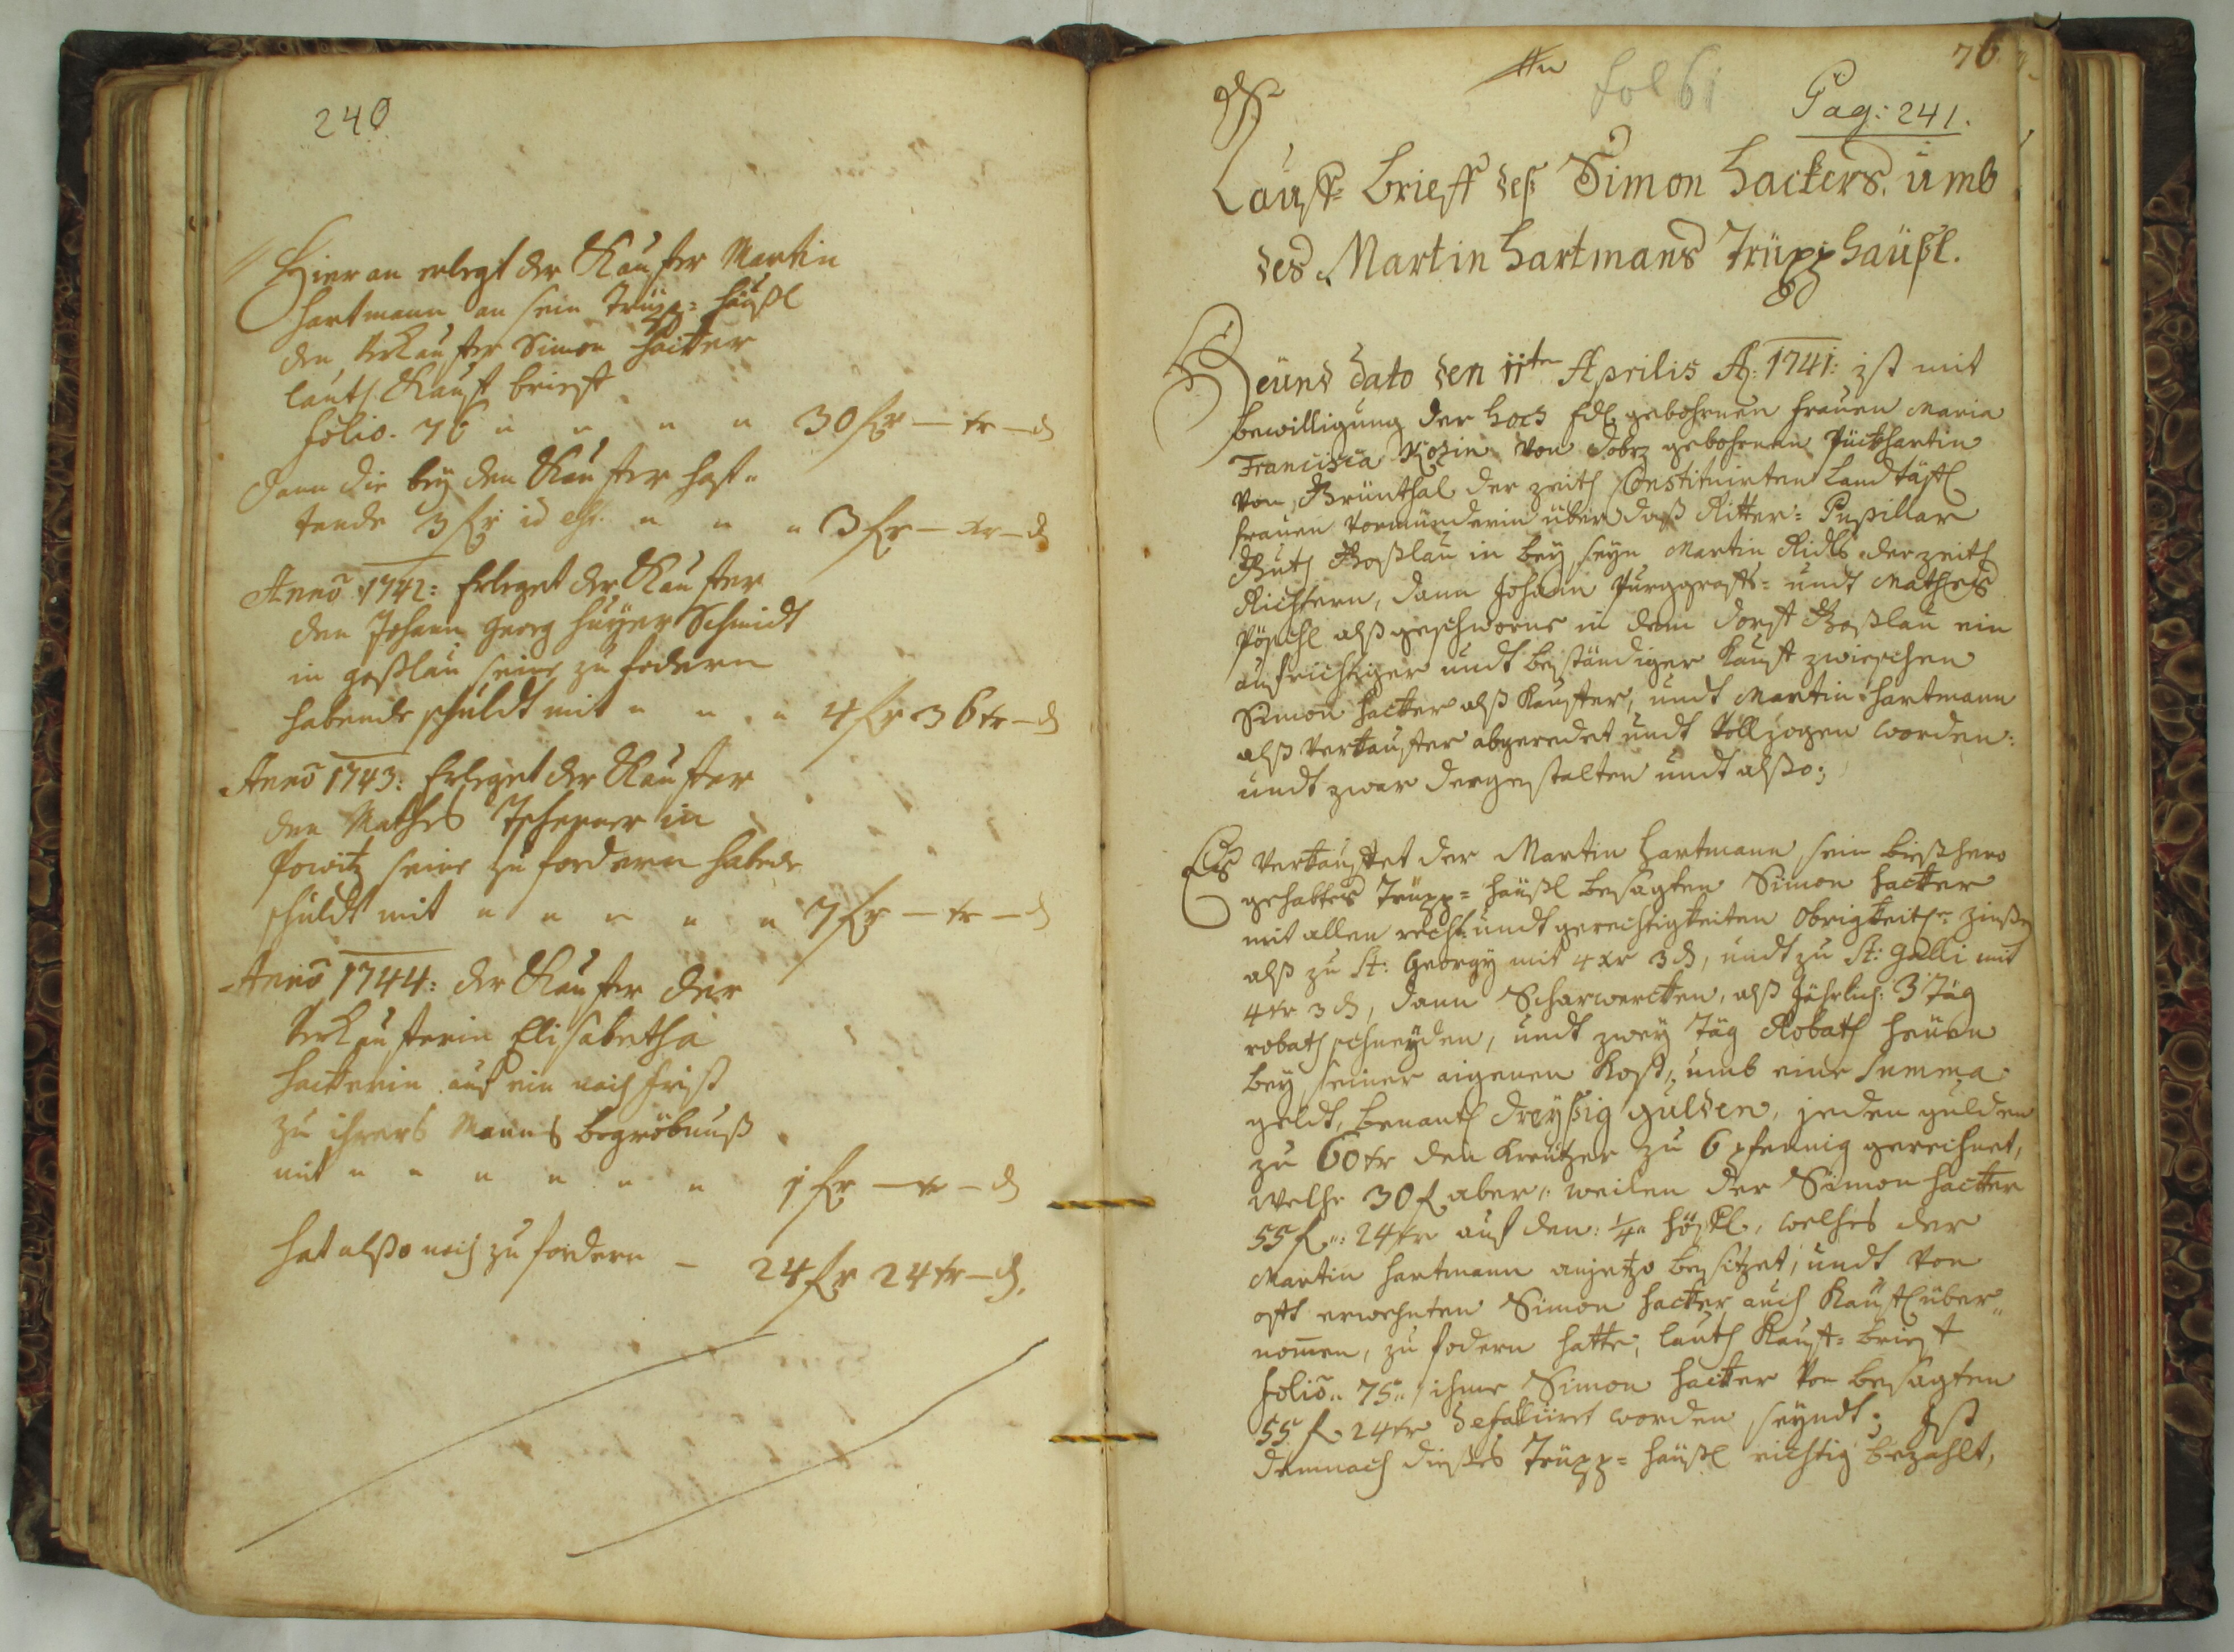 240
Hieran erlegt der Kauffer Martin
Hartmann an sein Trüpp= häußl
den Verkauffer Simon Hacker
lauth Kauff brieff
folio. 76 " " " " 30 fr — xr — d
Dann die bey den Kauffer haf=
tende 3 fr id est. " " " 3 fr — xr — d
Anno 1742: Erleget der Kauffer
den Johann Georg Huyer Schmidt
in Goßlau seine zu fodern
habende schuldt mit " " " 4 fr 36 xr — d
Anno 1743: Erleget der Kauffer
den Mathes Tscherner in
Powitz seine zu fordern habende
schuldt mit " " " " " 7 fr — xr — d
Anno 1744: der Kauffer der
Verkaufferin Elisabetha
Hackerin auf ein nach frist
zu ihrers Manns begröbnuß
mit " " " " " " 1 fr — xr — d
hat alßo noch zu fordern — 24 fr 24 xr — d.
76
fol 61
Pag: 241.
Kauff= Brieff deß Simon Hackers. umb
des Martin Hartmans Trüpphäußl.
Heund dato den 11ten Aprilis A: 1741: ist mit
bewilligung der Hoch Edl gebohrnen Frauen Maria
Francisca Kozin von Dobrz gebohrnen Pückhartin
von Grünthal der zeith Constituirten Landtäffl
frauen Vormünderin über daß Ritter= Pupillar
Guth Goßlau in bey seyn Martin Ridls derzeith
Richtern, dann Johann Purggraffs= undt Mathes
Pöschl alß geschworne in dem dorff Goßlau ein
aufrichtiger undt beständiger Kauff zwischen
Simon Hacker alß Kauffer, undt Martin Hartmann
alß Verkauffer abgeredet undt Vollzogen worden:
undt zwar dergestalten undt alßo;
Es Verkauffet der Martin Hartmann sein bißhero
gehabtes Trüpp= häußl besagten Simon Hacker
mit allen recht= undt gerechtigkeiten Obrigkeith= Zinßen
alß zu St: Georgy mit 4 xr 3 d, undt zu St: Galli mit
4 xr 3 d, dann Scharwercken, alß Jährlich: 3 Täg
robath schneyden, undt zwey Täg Robath heuen
bey seiner aigenen Kost, umb eine Summa
geldt, benanth dreyßig gulden, jeden gulden
zu 60 xr den Kreutzer zu 6 pfennig gerechnet,
Welche 30 f aber, weilen der Simon Hacker
55 f: 24 xr auf den: 1/4 Höffl, welches der
Martin Hartmann anjetzo besitzet, undt von
offt erwehnten Simon Hacker auch Käuffl. über=
nomen, zu fodern hatte, lauth Kauff= brieff
folio 75 ihme Simon Hacker von besagten
55 f 24 xr defalciret worden seyndt; Ist
demnach dießes Trüpp= häußl richtig bezahlt,